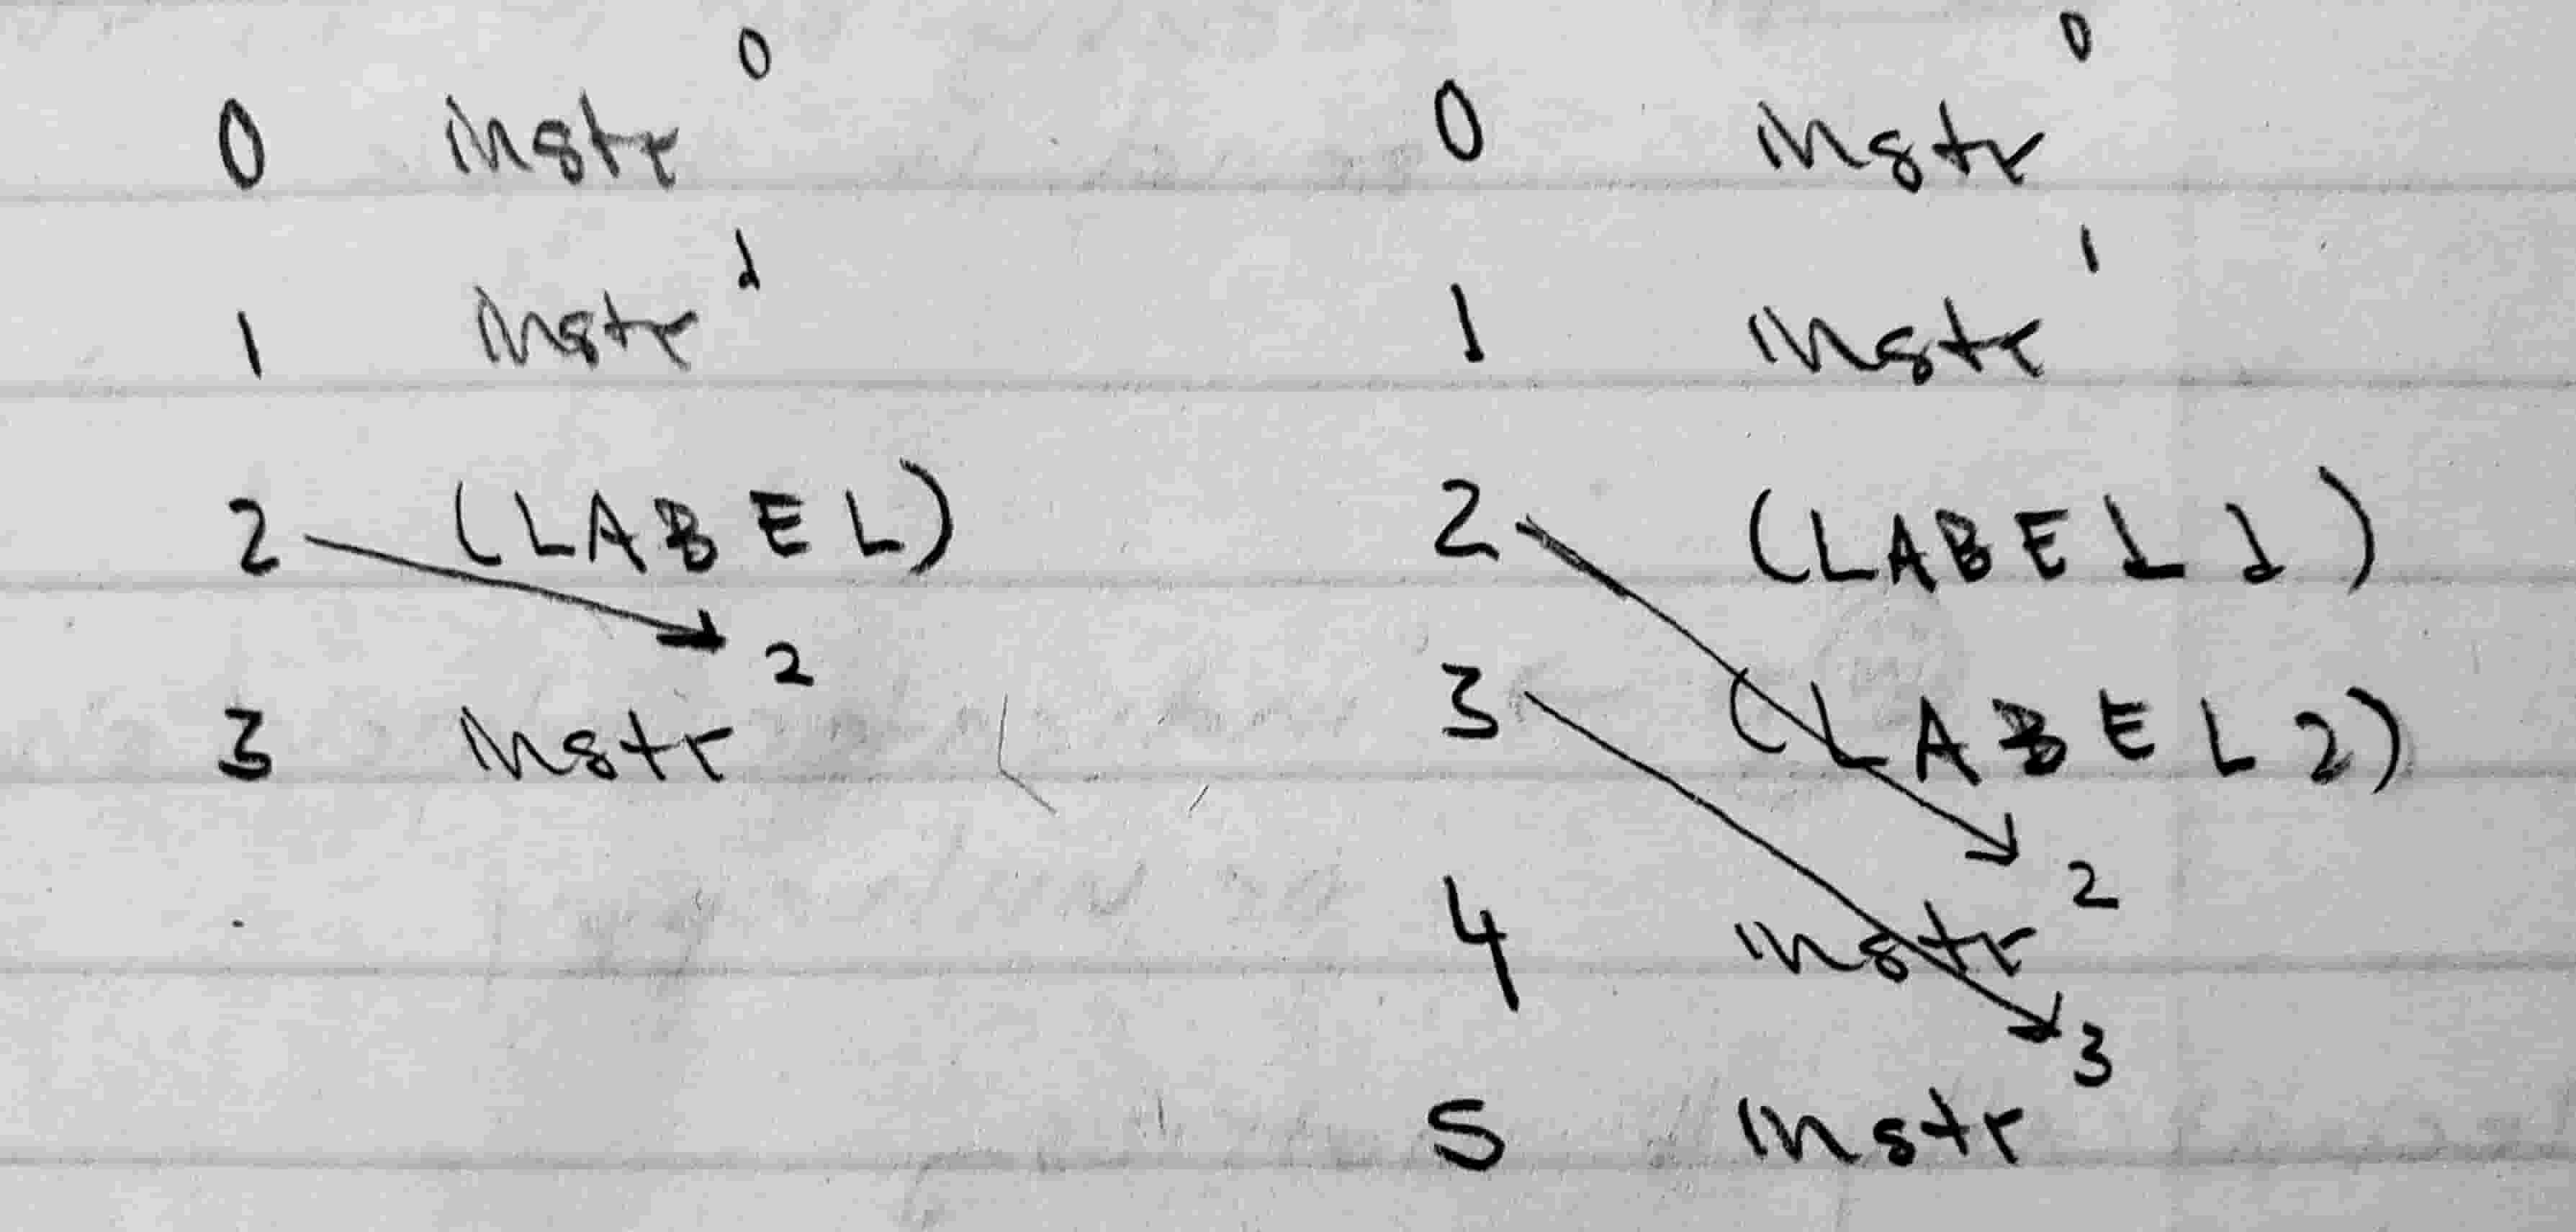 0 instr⁰
1 instr¹
2 (LABEL)
3 instr²
0 instr⁰
1 instr¹
2 (LABEL 1)
3 (LABEL 2)
4 instr²
5 instr³